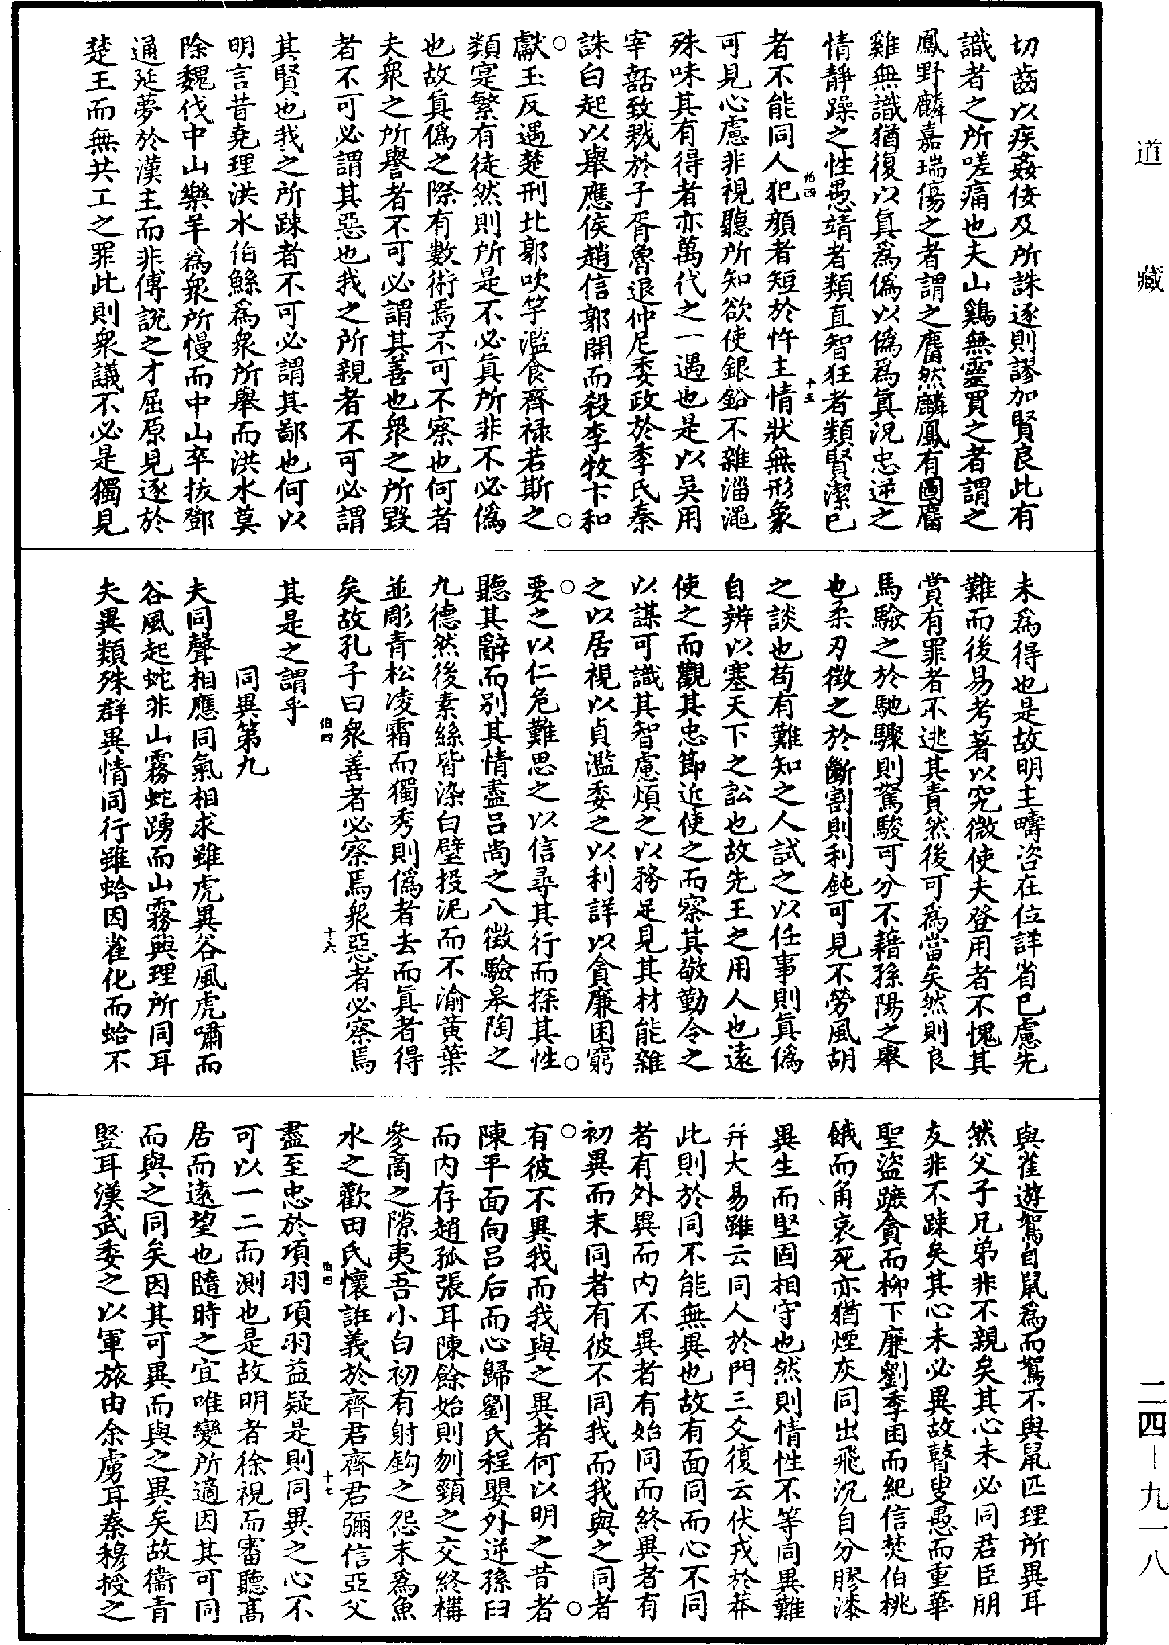 道藏
二四-九一八
切齒以疾姦佞及所誅逐則謬加賢良此有
識者之所嗟痛也夫山鷄無靈買之者謂之
鳳野麟嘉瑞傷之者謂之麏然麟鳳有圖麏
雞無識猶復以真爲僞以僞爲真況忠逆之
情靜躁之性愚靖者類直智狂者類賢潔已
伯四
十五
者不能同人犯顏者短於忤主情狀無形象
可見心慮非視聽所知欲使銀鉛不雜淄澠
殊味其有得者亦萬代之一遇也是以吳用
宰嚭致戮於子胥魯退仲尼委政於季氏秦
誅白起以舉應侯趙信郭開而殺李牧卞和
獻玉反遇楚刑北郭吹竽濫食齊祿若斯之
類寔繁有徒然則所是不必真所非不必僞
也故真僞之際有數術焉不可不察也何者
夫衆之所譽者不可必謂其善也衆之所毀
者不可必謂其惡也我之所親者不可必謂
其賢也我之所踈者不可必謂其鄙也何以
明言昔堯理洪水伯鯀爲衆所舉而洪水莫
除魏伐中山樂羊爲衆所慢而中山卒拔鄧
通延夢於漢主而非傅説之才屈原見逐於
楚王而無共工之罪此則衆議不必是獨見
未爲得也是故明主疇咨在位詳省已慮先
難而後易考著以究微使夫登用者不愧其
賞有罪者不逃其責然後可爲當矣然則良
馬驗之於馳驟則駑駿可分不藉孫陽之舉
也柔刃徵之於斷割則利鈍可見不勞風胡
之談也苟有難知之人試之以任事則真僞
自辨以塞天下之訟也故先王之用人也遠
使之而觀其忠節近使之而察其敬勤令之
以謀可識其智慮煩之以務足見其材能雜
之以居視以貞濫委之以利詳以貪廉困窮
要之以仁危難思之以信尋其行而探其性
聽其辭而別其情盡呂尚之八徵驗皋陶之
九德然後素絲皆染白璧投泥而不渝黃葉
並彫青松凌霜而獨秀則僞者去而真者得
矣故孔子曰衆善者必察焉衆惡者必察焉
伯四
十六
其是之謂乎
同異第九
夫同聲相應同氣相求雖虎異谷風虎嘯而
谷風起蛇非山霧蛇踴而山霧興理所同耳
夫異類殊群異情同行雖蛤因雀化而蛤不
與雀遊駕自鼠爲而駕不與鼠匹理所異耳
然父子兄弟非不親矣其心未必同君臣朋
友非不踈矣其心未必異故瞽叟愚而重華
聖盜蹠貪而柳下廉劉季困而紀信焚伯桃
餓而角哀死亦猶煙灰同出飛沉自分膠漆
異生而堅固相守也然則情性不等同異難
并大易雖云同人於門三爻復云伏戎於莽
此則於同不能無異也故有面同而心不同
者有外異而内不異者有始同而終異者有
初異而末同者有彼不同我而我與之同者
有彼不異我而我與之異者何以明之昔者
陳平面向呂后而心歸劉氏程嬰外逆孫臼
而内存趙孤張耳陳餘始則刎頸之交終構
參商之隙夷吾小白初有射鈎之怨末爲魚
水之歡田氏懷誑義於齊君齊君彌信亞父
伯四
十七
盡至忠於項羽項羽益疑是則同異之心不
可以一二而測也是故明者徐視而審聽髙
居而遠望也隨時之宜唯變所適因其可同
而與之同矣因其可異而與之異矣故衞青
竪耳漢武委之以軍旅由余虜耳秦穆授之